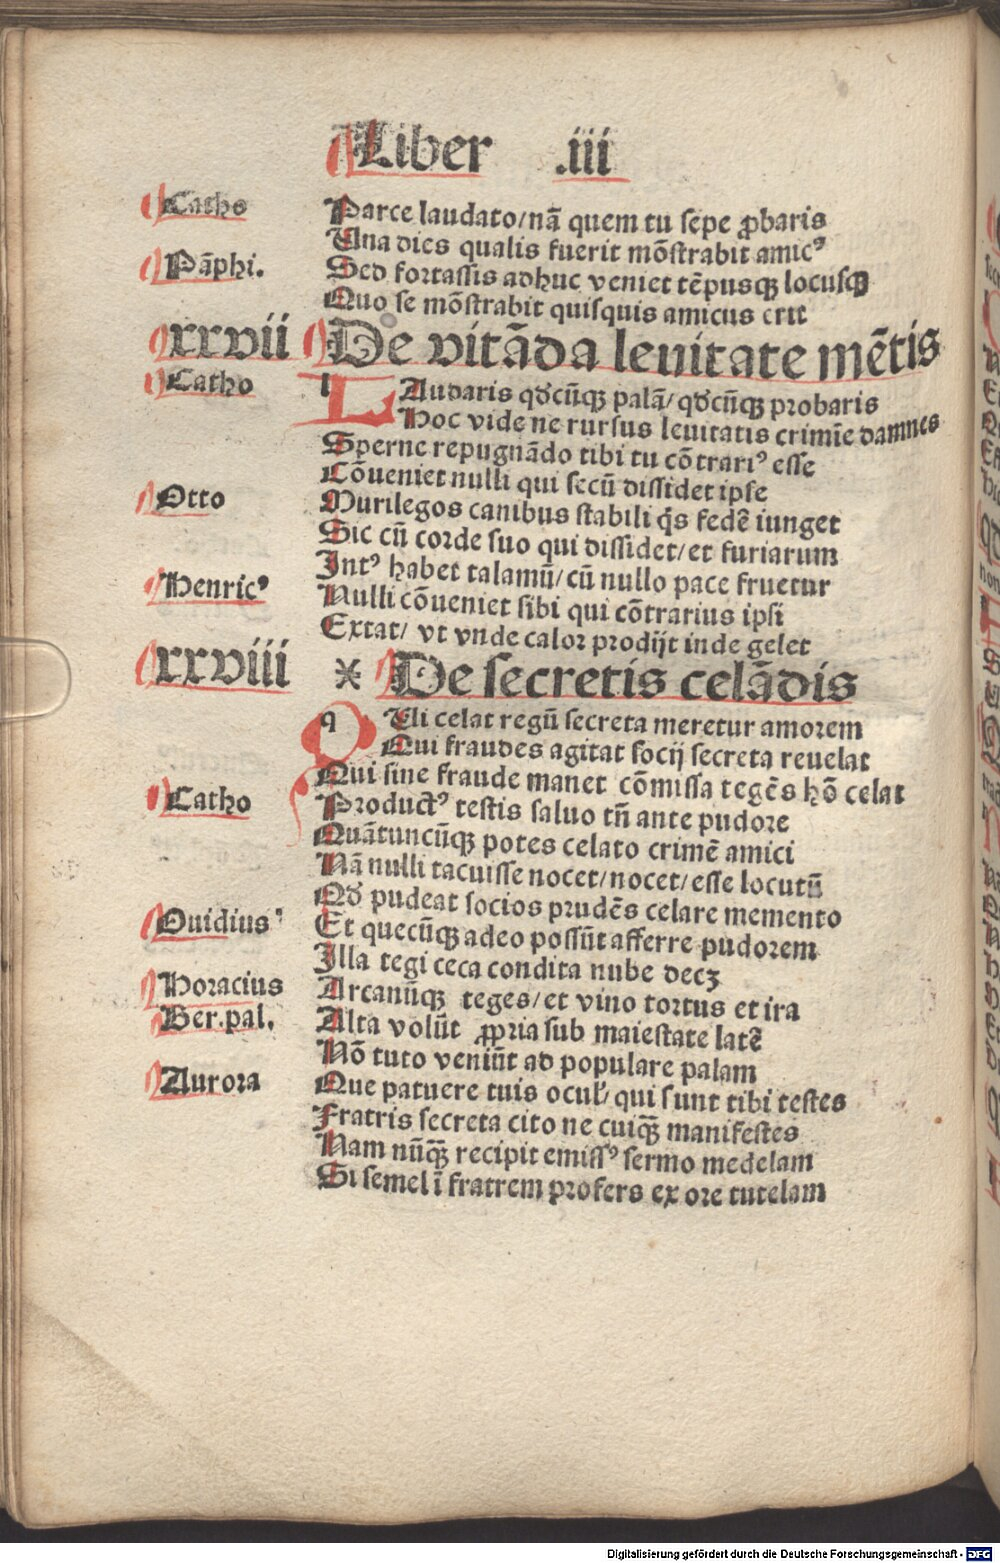 Liber .iii
Catho Parce laudato/nā quem tu sepe ꝓbaris
Una dies qualis fuerit mōstrabit amicꝰ
Pāphi. Sed fortassis adhuc veniet tēpusqꝫ locusqꝫ
Quo se mōstrabit quisquis amicus erit
xxvii De vitāda leuitate mētis
Catho l Audaris qđcūqꝫ palā/qđcūqꝫ probaris
Hoc vide ne rursus leuitatis crimīe damnes
Sperne repugnādo tibi tu cōtrariꝰ esse
Cōueniet nulli qui secū dissidet ipse
Otto Murilegos canibus stabili q̄s fedē iunget
Sic cū corde suo qui dissidet/et furiarum
Intꝰ habet talamū/cū nullo pace fruetur
Henricꝰ Nulli cōueniet sibi qui cōtrarius ipsi
Extat/ vt vnde calor prodijt inde gelet
xxviii * De secretis celādis
q Ui celat regū secreta meretur amorem
Qui fraudes agitat socij secreta reuelat
Qui sine fraude manet cōmissa tegēs hō celat
Catho Productꝰ testis saluo tñ ante pudore
Quātuncūqꝫ potes celato crimē amici
Nā nulli tacuisse nocet/nocet/esse locutū
Qđ pudeat socios prudēs celare memento
Ouidius Et quecūqꝫ adeo possūt afferre pudorem
Illa tegi ceca condita nube decꝫ
Horacius Arcanūqꝫ teges/et vino tortus et ira
Ber.pal. Alta volūt ꝓpria sub maiestate latē
Nō tuto veniūt ad populare palam
Aurora Que patuere tuis ocul'/qui sunt tibi testes
Fratris secreta cito ne cuiqꝫ̄ manifestes
Nam nūqꝫ̄ recipit emissꝰ sermo medelam
Si semel ī fratrem profers ex ore tutelam
Digitalisierung gefördert durch die Deutsche Forschungsgemeinschaft - DFG